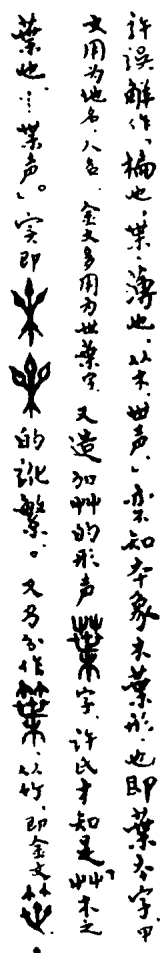 許误解作「楄也；枼，薄也。从木，世声。」知本象木葉形，也即葉本字。甲
文用为地名、人名，金文多用为世葉字，又造加艸的形声字，許氏才知是「艸木之
葉也，…枼声。」实即的訛繁。又另分作，从竹，即金文。